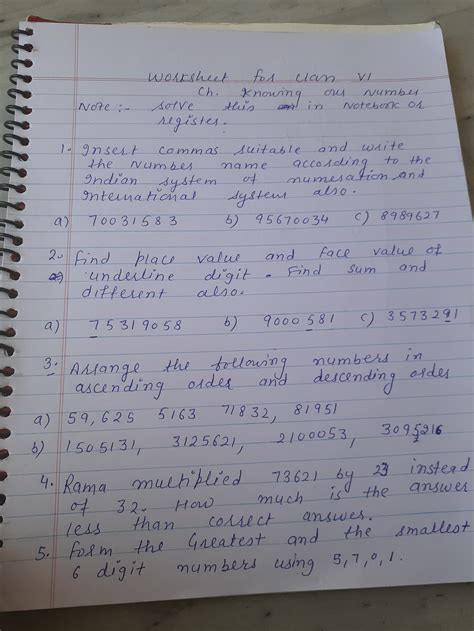 Worksheet for Class VI
Ch. Knowing our Number
Note :- solve this in Notebook or
register.
1. Insert commas suitable and write
the Number name according to the
Indian system of numeration and
International system also.
a) 70031583 b) 95670034 c) 8989627
2. Find place value and face value of
underline digit. Find sum and
different also.
a) 75319058 b) 9000581 c) 3573291
3. Arrange the following numbers in
ascending order and descending order
a) 59,625 5163 71832, 81951
b) 1505131, 3125621, 2100053, 3095216
4. Rama multiplied 73621 by 23 instead
of 32. How much is the answer
less than correct answer.
5. Form the Greatest and the smallest
6 digit numbers using 5,7,0,1.